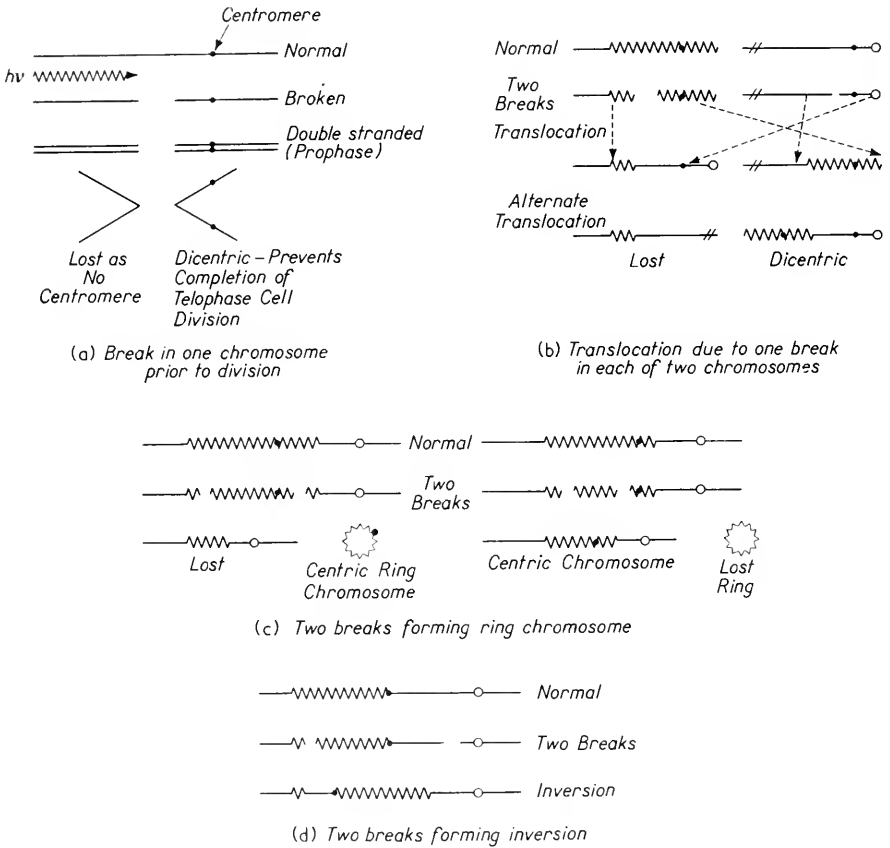 Centromere
Normal
hν
Broken
Double stranded
(Prophase)
Lost as
No
Centromere
Dicentric – Prevents
Completion of
Telophase Cell
Division
(a) Break in one chromosome
prior to division
Normal
Two
Breaks
Translocation
Alternate
Translocation
Lost
Dicentric
(b) Translocation due to one break
in each of two chromosomes
Normal
Two
Breaks
Lost
Centric Ring
Chromosome
Centric Chromosome
Lost
Ring
(c) Two breaks forming ring chromosome
Normal
Two Breaks
Inversion
(d) Two breaks forming inversion